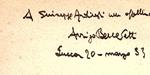 A Giuseppe Ardrizzi con affetto
Arrigo Benedetti
Lucca 20 - marzo 33